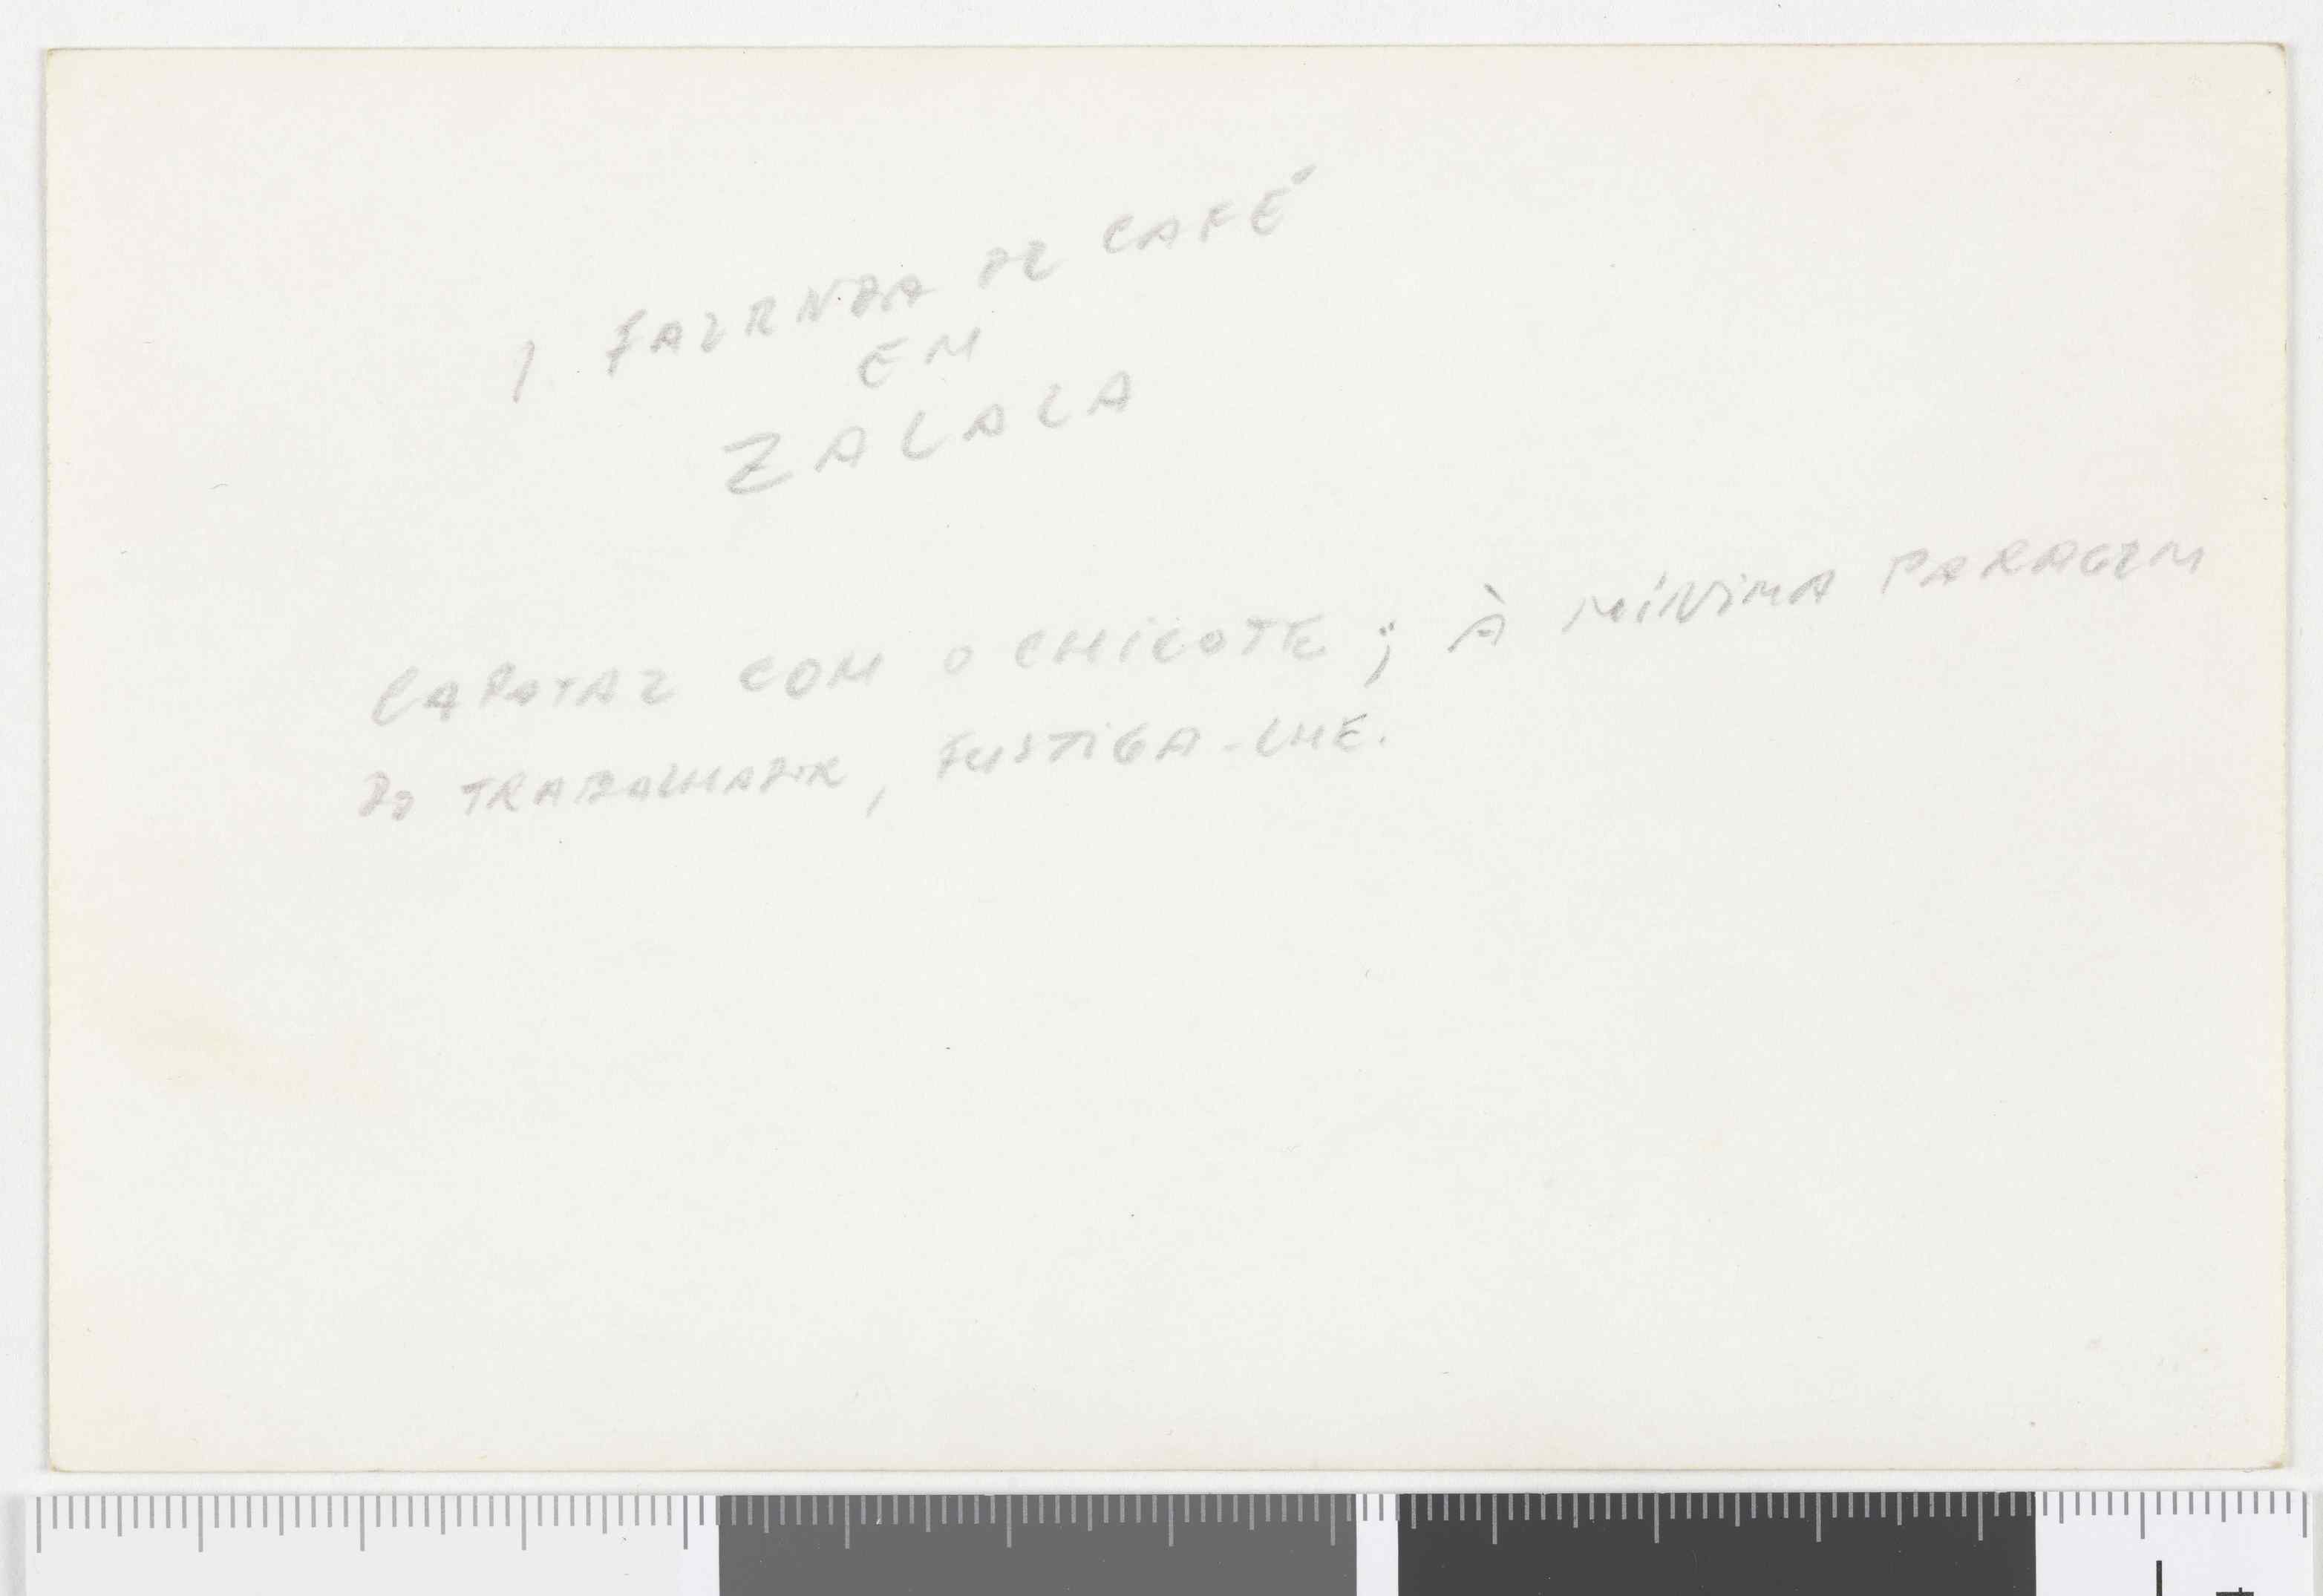 1 FAZENDA DE CAFÉ
EM
ZALALA
CAPATAZ COM O CHICOTE; À MÍNIMA PARAGEM
DO TRABALHADOR, FUSTIGA-LHE.